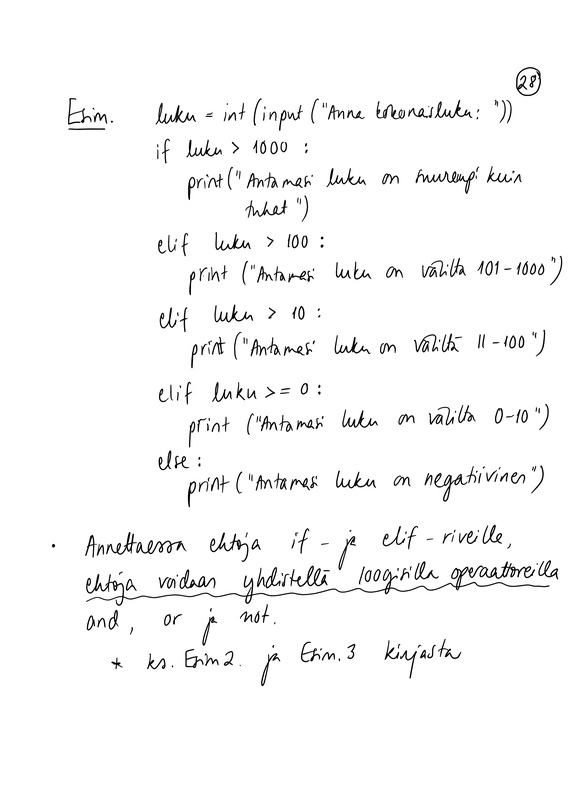 28
Esim. luku = int (input ("Anna kokonaisluku: "))
if luku > 1000 :
print (" Antamasi luku on suurempi kuin
tuhat ")
elif luku > 100 :
print ("Antamasi luku on väliltä 101-1000")
elif luku > 10 :
print ("Antamasi luku on väliltä 11-100 ")
elif luku >= 0 :
print ("Antamasi luku on väliltä 0-10 ")
else :
print ("Antamasi luku on negatiivinen")
· Annettaessa ehtoja if - ja elif - riveille,
ehtoja voidaan yhdistellä loogisilla operaattoreilla
and, or ja not.
* ks. Esim 2. ja Esim. 3 kirjasta